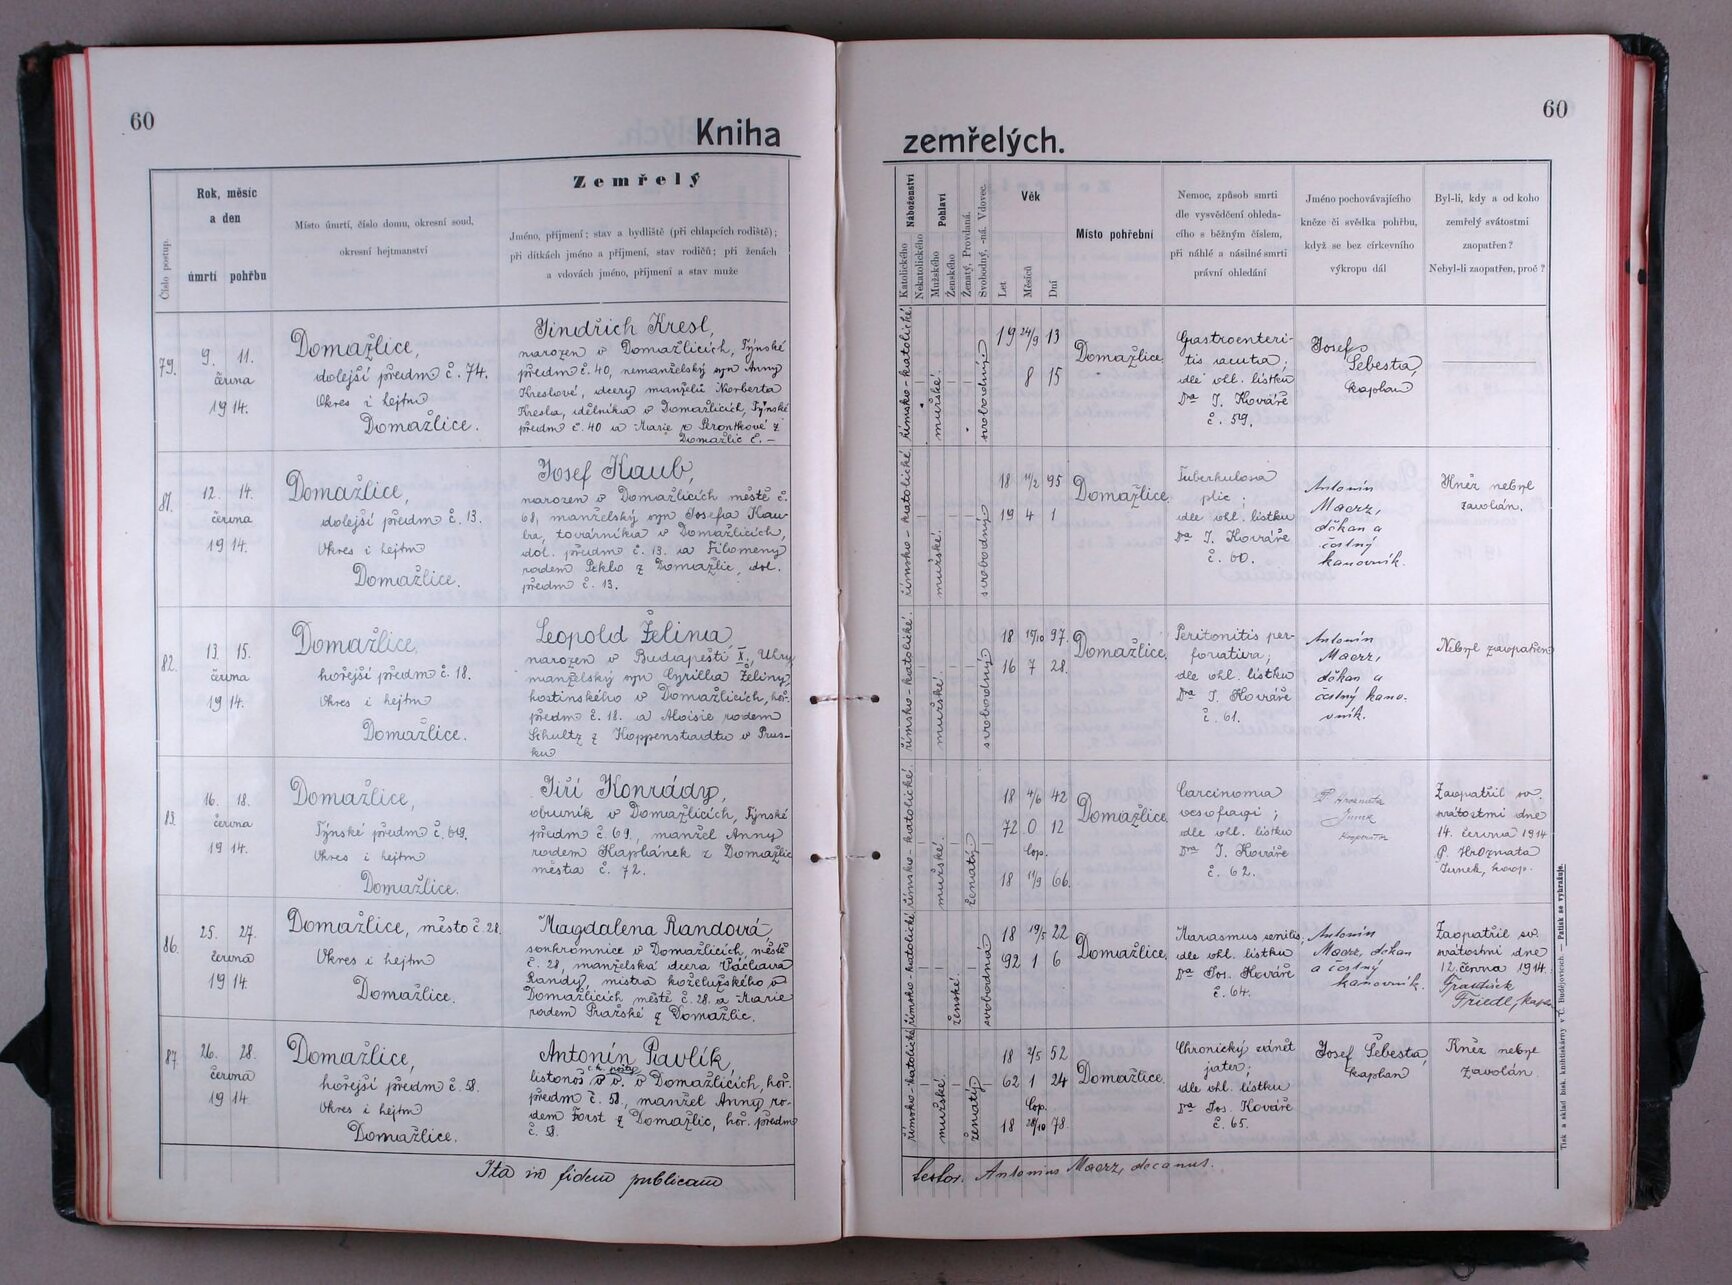 60
Kniha
Číslo postup.
Rok, měsíc
a den
úmrtí pohřbu
Místo úmrtí, číslo domu, okresní soud,
okresní hejtmanství
Zemřelý
Jméno, příjmení; stav a bydliště (při chlapcích rodiště);
při dítkách jméno a příjmení, stav rodičů; při ženách
a vdovách jméno, příjmení a stav muže
79.
9. 11.
června
1914.
Domažlice,
dolejší předm č. 74.
Okres i hejtm
Domažlice.
Jindřich Kresl,
narozen v Domažlicích, Týnské
předm č. 40, nemanželský syn Anny
Kreslové, dcery manželů Norberta
Kresla, dělníka v Domažlicích, Týnské
předm č. 40 a Marie
Domažlic č. –
81.
12. 14.
června
1914.
Domažlice,
dolejší předm č. 13.
Okres i hejtm
Domažlice.
Josef Kaub,
narozen v Domažlicích městě č.
68, manželský syn Josefa Kau-
ba, továrníka v Domažlicích,
dol. předm č. 13. a Filomeny
rodem Peklo z Domažlic, dol.
předm č. 13.
82.
13. 15.
června
1914.
Domažlice,
hořejší předm č. 18.
Okres i hejtm
Domažlice.
Leopold Želina,
narozen v Budapešti X., Uhry,
manželský syn Cyrilla Želiny,
hostinského v Domažlicích, hoř.
předm č. 18. a Aloisie rodem
Schultz z Koppenstaedtu v Prus-
ku
16. 18.
června
1914.
Domažlice,
Týnské předm č. 69.
Okres i hejtm
Domažlice.
Jiří Konrády,
obuvník v Domažlicích, Týnské
předm č. 69, manžel Anny
rodem Kapbánek z Domažlic
města č. 72.
86.
25. 27.
června
1914.
Domažlice, město č. 28.
Okres i hejtm
Domažlice.
Magdalena Randová
soukromnice v Domažlicích, městě
č. 28, manželská dcera Václava
Randy, mistra koželužského v
Domažlicích městě č. 28. a Marie
rodem Pražské z Domažlic.
87.
26. 28.
června
1914.
Domažlice,
hořejší předm č. 58.
Okres i hejtm
Domažlice.
Antonín Pavlík,
listonoš v Domažlicích, hoř.
předm č. 58, manžel Anny ro-
dem Forst z Domažlic, hoř. předm
č. 58.
Ita in fidem publicam
60
zemřelých.
Náboženství
Katolického
Nekatolického
Pohlaví
Mužského
Ženského
Ženatý, Provdaná.
Svobodný, -ná. Vdovec
Věk
Let
Měsíců
Dní
Místo pohřební
Nemoc, způsob smrti
dle vysvědčení ohleda-
cího s běžným číslem,
při náhlé a násilné smrti
právní ohledání
Jméno pochovávajícího
kněze či svědka pohřbu,
když se bez církevního
výkropu dál
Byl-li, kdy a od koho
zemřelý svátostmi
zaopatřen?
Nebyl-li zaopatřen, proč?
římsko-katolické
mužské
svobodný
19 24/9 13
8 15
Domažlice.
Gastroenteri-
tis acuta;
dle ohl. lístku
Dra J. Kováře
č. 59.
Josef
Šebesta,
kaplan
římsko-katolické
mužské
svobodný
18 11/2 95
19 4 1
Domažlice.
Tuberkulosa
plic;
dle ohl. lístku
Dra J. Kováře
č. 60.
Antonín
Maerz,
děkan a
čestný
kanovník.
Kněz nebyl
zavolán.
římsko-katolické
mužské
svobodný
18 15/10 97.
16 7 28.
Domažlice.
Peritonitis per-
forativa;
dle ohl. lístku
Dra J. Kováře
č. 61.
Antonín
Maerz,
děkan a
čestný kano-
vník.
Nebyl zaopatřen
římsko-katolické
mužské
ženatý
18 4/6 42
72 0 12
cop.
18 11/9 66.
Domažlice.
Carcinoma
oesofagi;
dle ohl. lístku
Dra J. Kováře
č. 62.
P. Hroznata
Junek
kooperátor
Zaopatřil sv.
svátostmi dne
14. června 1914
P. Hroznata
Junek, koop.
římsko-katolické
ženské
svobodná
18 19/5 22
92 1 6
Domažlice.
Marasmus senilis,
dle ohl. lístku
Dra Jos. Kováře
č. 64.
Antonín
Maerz, děkan
a čestný
kanovník.
Zaopatřil sv.
svátostmi dne
12. června 1914.
František
Friedl, kaplan
římsko-katolické
mužské
ženatý
18 2/5 52
62 1 24
Cop.
18 28/10 78.
Domažlice.
Chronický zánět
jater;
dle ohl. lístku
Dra Jos. Kováře
č. 65.
Josef Šebesta,
kaplan
Kněz nebyl
zavolán.
testor. Antonius Maerz, decanus.
Tisk a sklad bisk. knihtiskárny v Č. Budějovicích. — Patisk se vyhražuje.